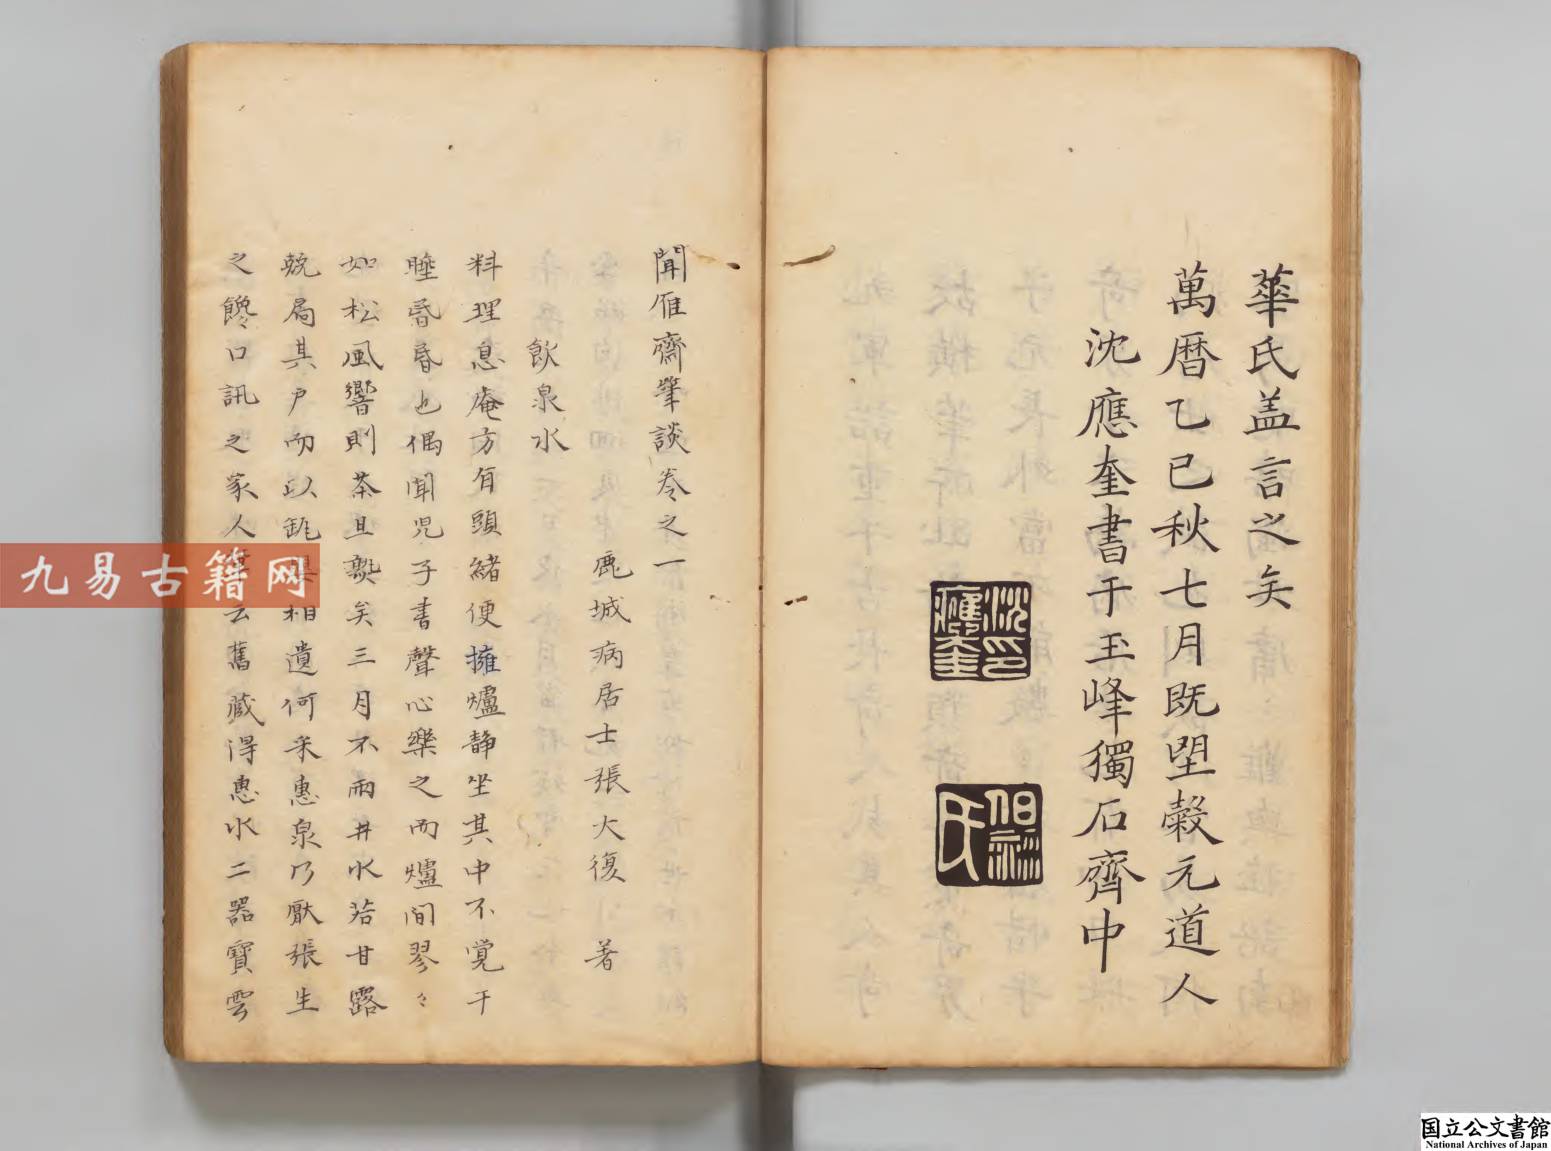 華氏盖言之矣
萬曆乙巳秋七月既朢穀元道人
沈應奎書于玉峰獨石齊中
沈印應奎
伯和氏
聞雁齋筆談卷之一
鹿城病居士張大復 著
飲泉水
料理息庵方有頭緒便擁爐静坐其中不覚干
睡昏昏也偶聞児子書聲心樂之而爐間琴〻
如松風響則茶且熟矣三月不雨井水若甘露
兢扃其戶而以缾相遺何来惠泉乃厭張生
之饞口訊之家人云舊藏得惠水二器寶雲
九易古籍网
国立公文書館
National Archives of Japan